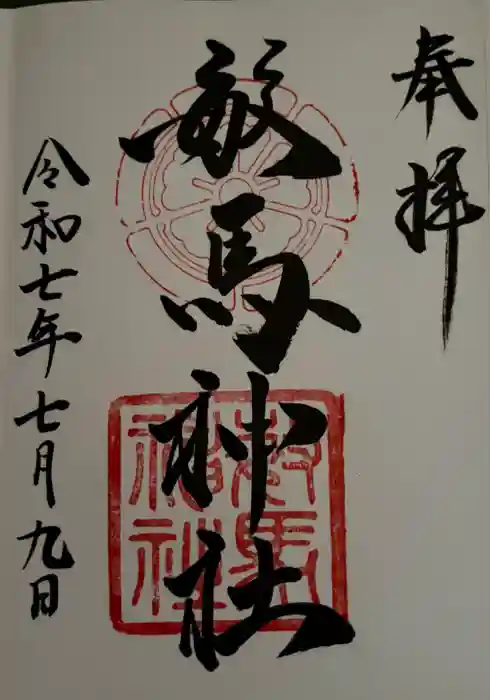 奉拝
敏馬神社
令和七年七月九日
敏馬
神社